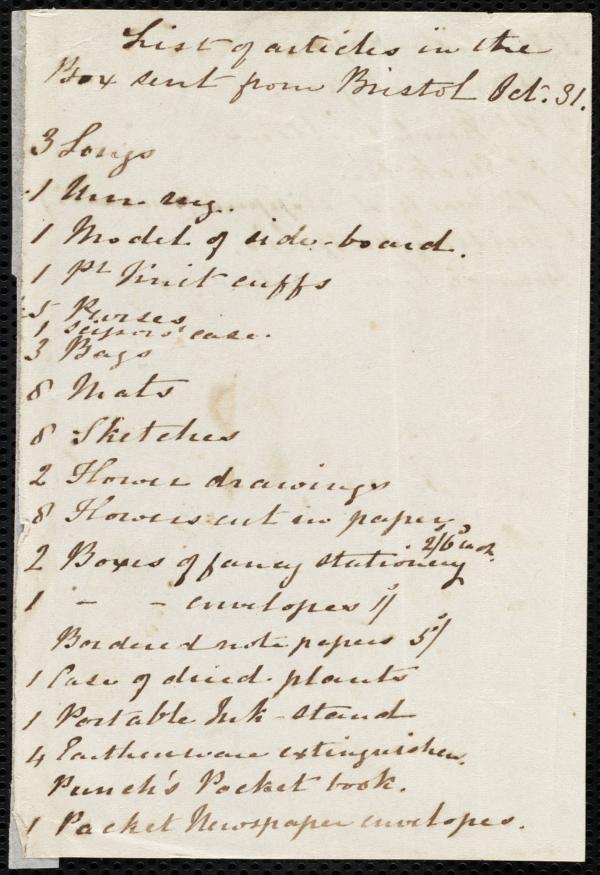 List of articles in the
Box sent from Bristol Oct. 31.
3 Songs
1 Urn rug.
1 Model of side-board.
1 Pr Knit cuffs
5 Purses
1 scissors case.
3 Bags
8 Mats
8 Sketches
2 Flower drawings
8 Flowers cut in paper
2 Boxes of fancy stationery 2/6 each.
1 - - envelopes 1/
Bordered note papers 5/
1 Case of dried plants
1 Portable Ink-stand
4 Earthenware extinguisher.
Punch's Pocket book.
1 Packet Newspaper envelopes.